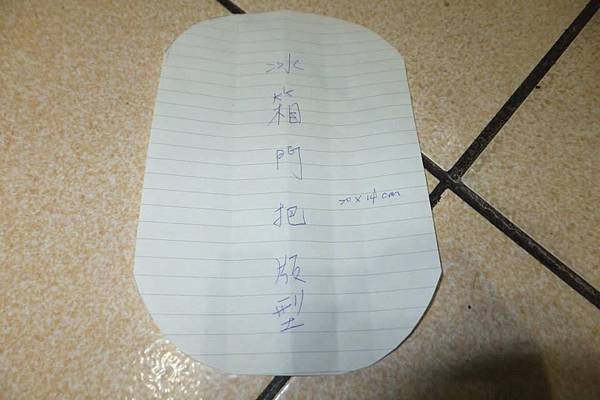 冰箱門把版型
20x14cm